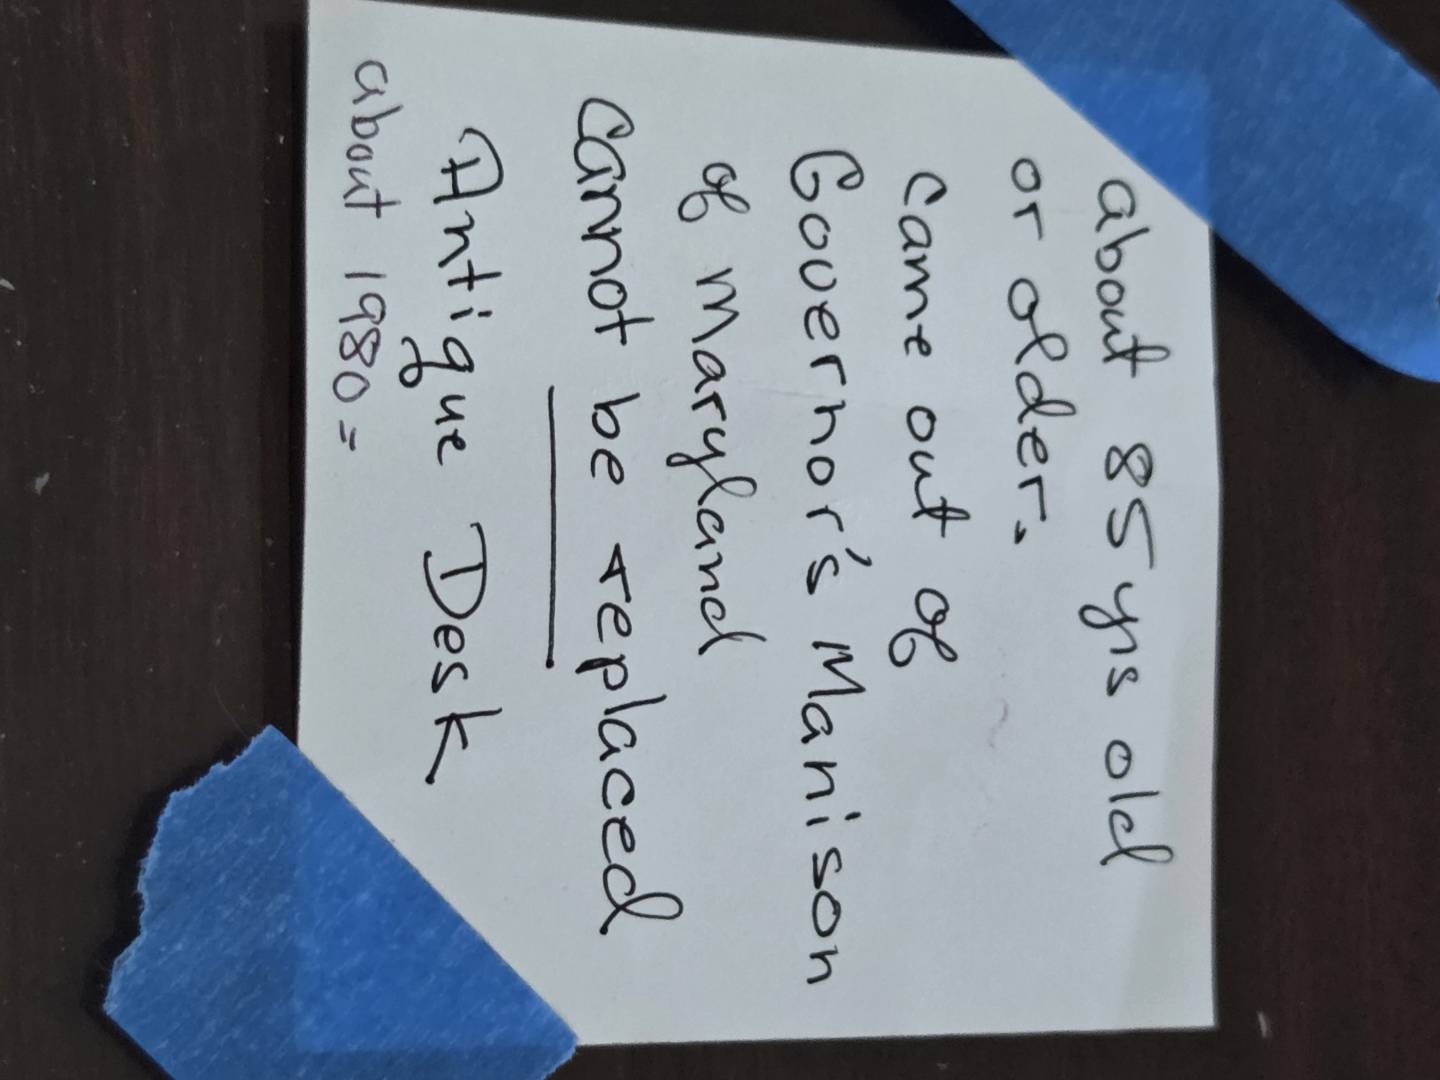 about 85 yrs old
or older.
came out of
Governor's Manison
of maryland
Cannot be replaced
Antique Desk
about 1980 =